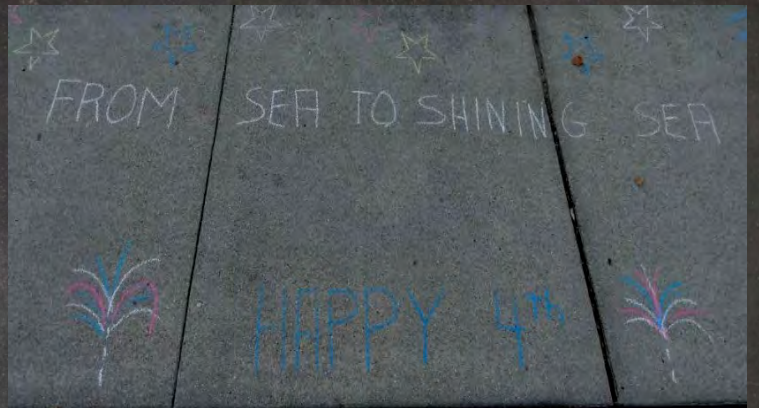 FROM SEA TO SHINING SEA
HAPPY 4th